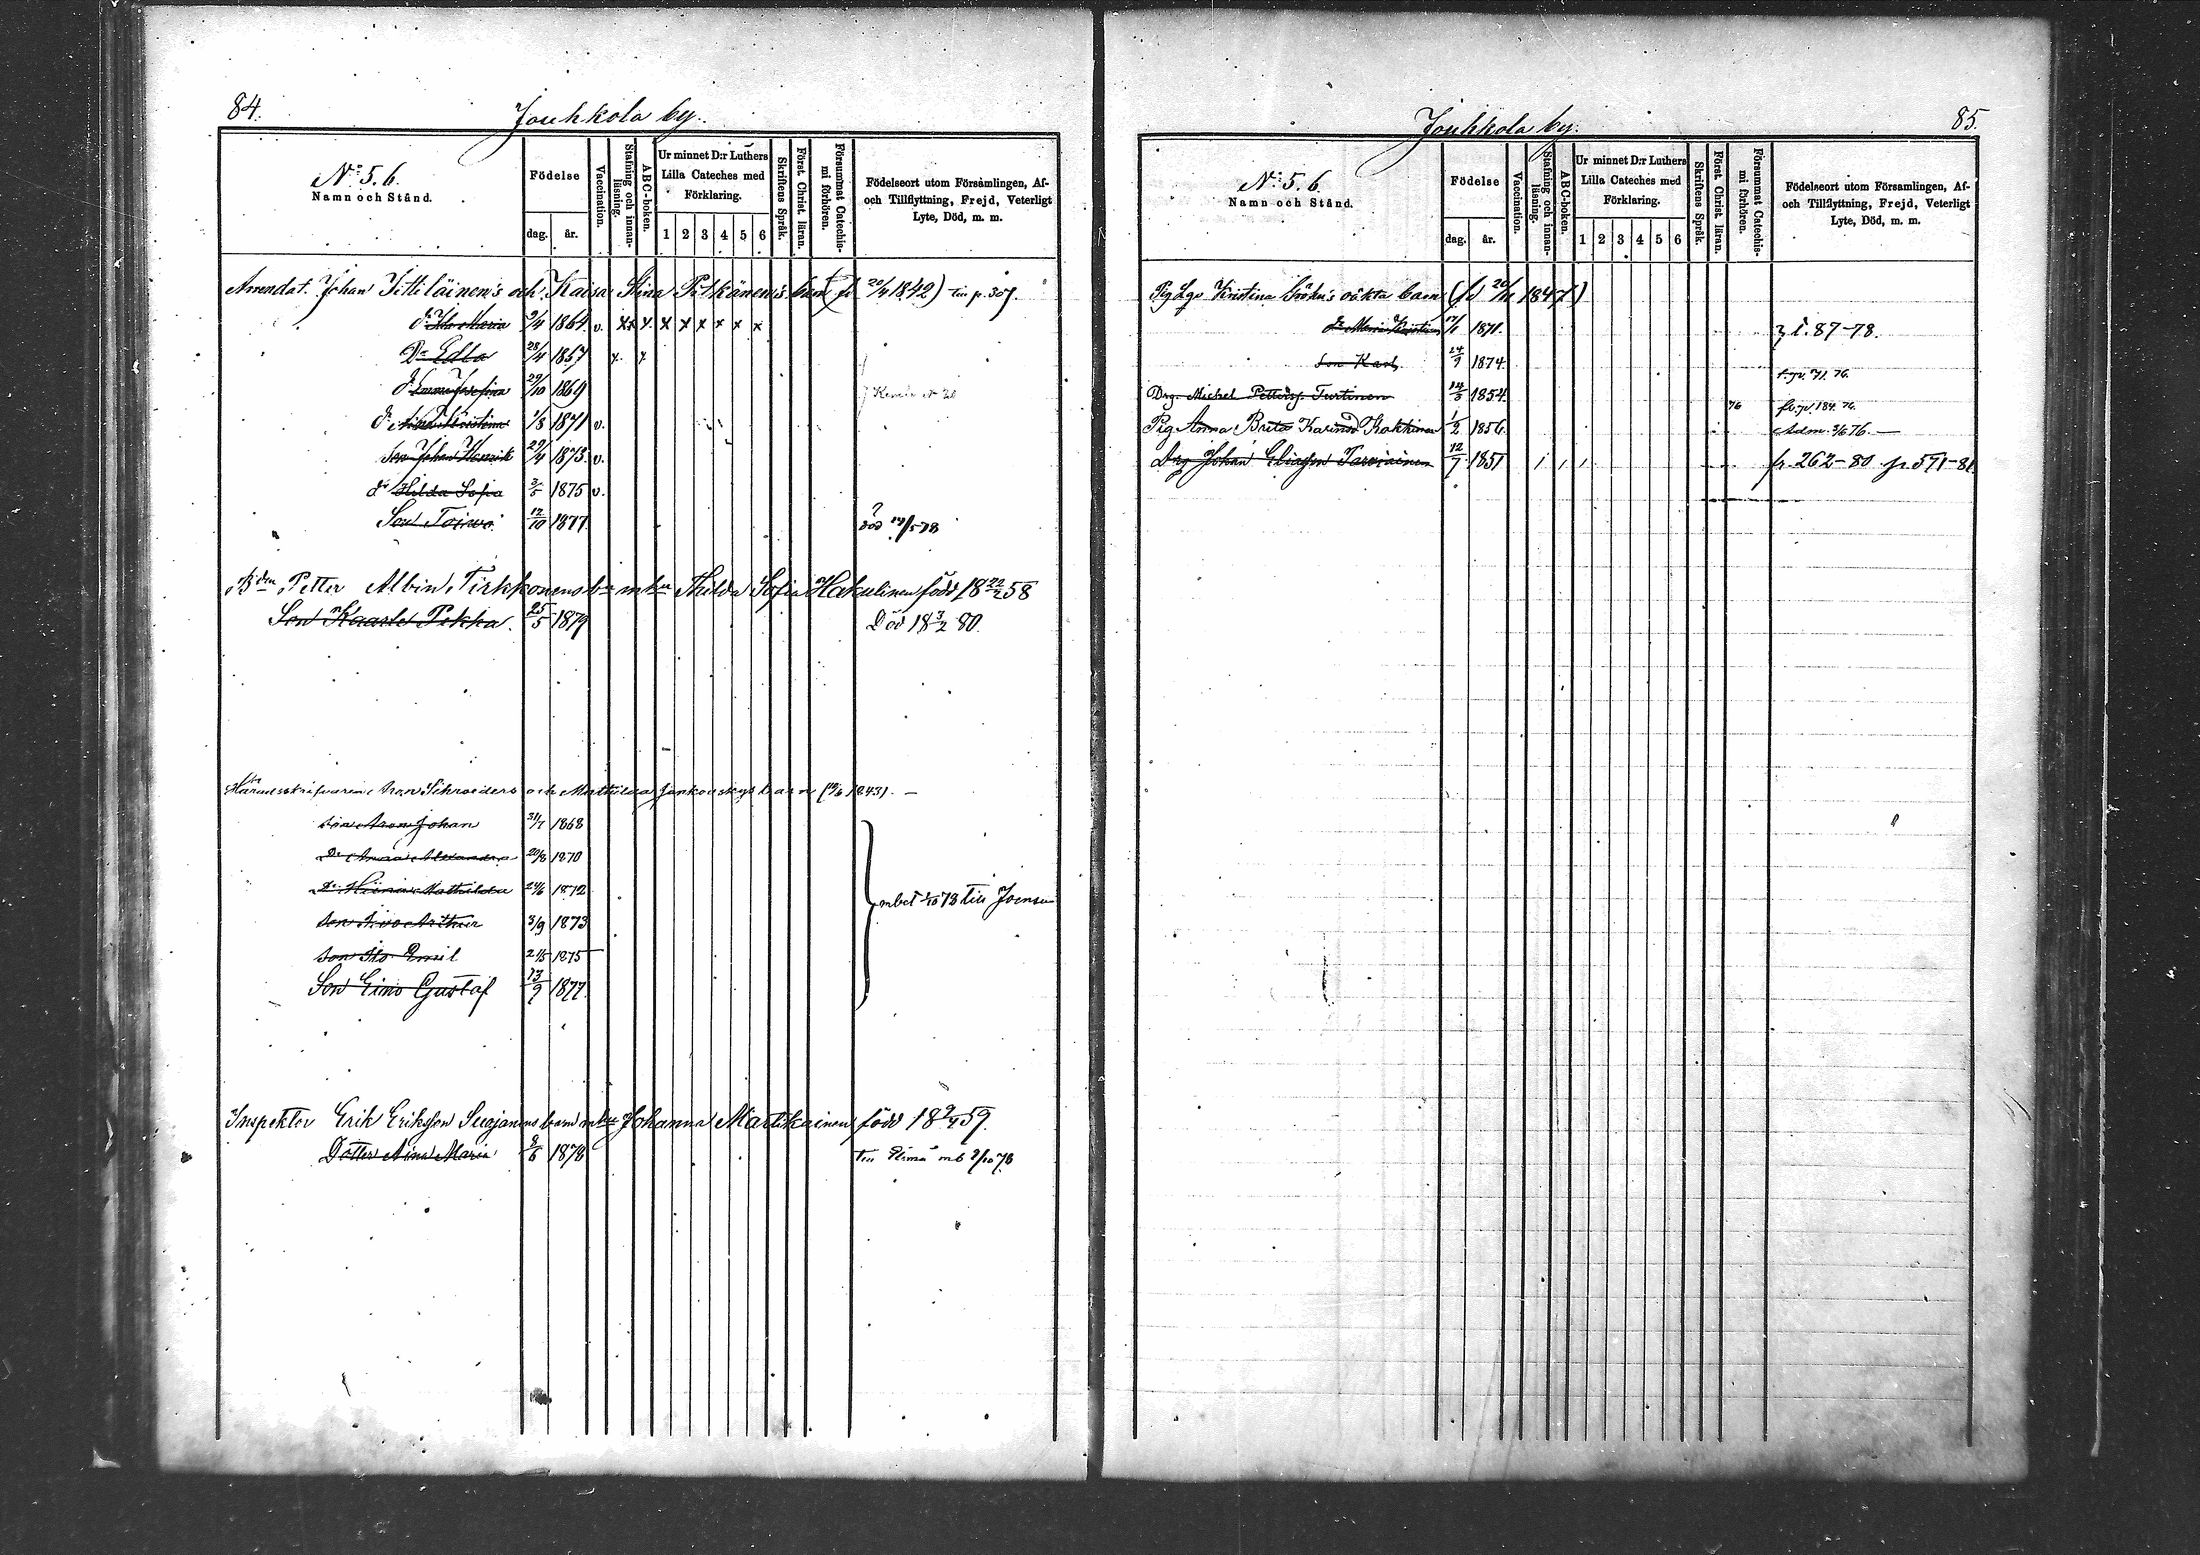 84.
Jouhkola by.
No 5. 6.
Namn och Stånd.
Födelse
dag. år.
Vaccination.
Stafning och innanläsning.
ABC-boken.
Ur minnet D:r Luthers
Lilla Cateches med
Förklaring.
1 2 3 4 5 6
Skriftens Språk.
Förest. Christ. läran.
Försummat Catechismi förhören.
Födelseort utom Församlingen, Af-
och Tillflyttning, Frejd, Veterligt
Lyte, Död, m. m.
Arrendat. Johan och Kaisa Stina Pitkänen's barn fd 20/4 1842) till p. 307.
dr Ida Maria 9/4 1864 v. x x x x x x x x
Dr Edla 28/4 1867 x x
dr Emma Josefina 29/10 1869
dr Kristina 1/8 1871 v.
Son Johan Henrik 29/4 1873 v.
dr Hilda Sofia 3/5 1875 v.
Son Toivo 12/10 1877 död 19/5 78
Petter Albin Tirkkonens b. m hu Hilda Sofia Hakulinen född 18 22/2 58
Son Kaarle Pekka 25/5 1879 Död 18 3/2 80.
Häradsskrifvaren Aron Schroeders och Mathilda Jankovskys barn 1843). —
son Aron Johan 31/7 1868
Dr Anna Alexandra 20/8 1870
dr Mathilda 1872
son Ivo Arthur 3/9 1873
son Ilo Emil 1875
Son Eino Gustaf 13/9 1877
mbet 78 till Joensuu
Inspektor Erik Eriksson barn m hu Johanna Martikainen född 18 59
Dotter Aina Maria 8/6 1878 till mb 2/10 78
85.
Jouhkola by.
No 5. 6.
Namn och Stånd.
Födelse
dag. år.
Vaccination.
Stafning och innanläsning.
ABC-boken.
Ur minnet D:r Luthers
Lilla Cateches med
Förklaring.
1 2 3 4 5 6
Skriftens Språk.
Förest. Christ. läran.
Försummat Catechismi förhören.
Födelseort utom Församlingen, Af-
och Tillflyttning, Frejd, Veterligt
Lyte, Död, m. m.
Pig Kristina oäkta barn (fd 1847)
dr Maria Kristina 1871. 87-78.
Son Karl 24/9 1874.
Drg. Michel Petterss. Turtinen 14/3 1854 f. p. 71. 76.
Pig Anna Brita Kakkinen 1/2 1856 76 fr. p. 184. 76.
Adm. 3/6 76. —
Drg Johan Eliasson Tarvainen 12/7 1851 1 1 1 fr. 262-80 p 571-81